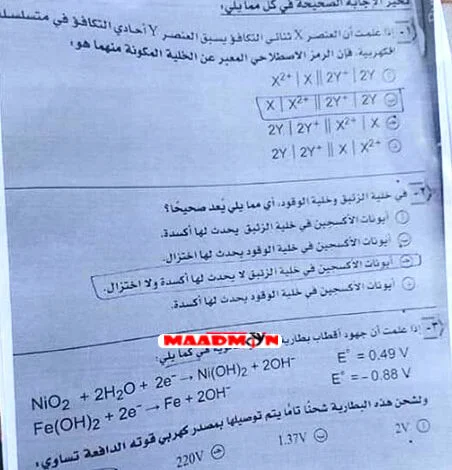 تخير الإجابة الصحيحة في كل مما يلي:
١- إذا علمت أن العنصر X ثنائي التكافؤ يسبق العنصر Y أحادي التكافؤ في متسلسلة
الكهربية، فإن الرمز الاصطلاحي المعبر عن الخلية المكونة منهما هو:
أ X²⁺ | X || 2Y⁺ | 2Y
ب X | X²⁺ || 2Y⁺ | 2Y
ج 2Y | 2Y⁺ || X²⁺ | X
د 2Y | 2Y⁺ || X | X²⁺
٢- في خلية الزئبق وخلية الوقود، أي مما يلي يُعد صحيحًا؟
أ أيونات الأكسجين في خلية الزئبق يحدث لها أكسدة.
ب أيونات الأكسجين في خلية الوقود يحدث لها اختزال.
ج أيونات الأكسجين في خلية الزئبق لا يحدث لها أكسدة ولا اختزال.
د أيونات الأكسجين في خلية الوقود يحدث لها أكسدة.
٣- إذا علمت أن جهود أقطاب بطارية هي كما يلي:
MAADMON
NiO₂ + 2H₂O + 2e⁻ → Ni(OH)₂ + 2OH⁻ E° = 0.49 V
Fe(OH)₂ + 2e⁻ → Fe + 2OH⁻ E° = – 0.88 V
ولشحن هذه البطارية شحنًا تامًا يتم توصيلها بمصدر كهربي قوته الدافعة تساوي:
أ 2V ب 1.37V ج 220V